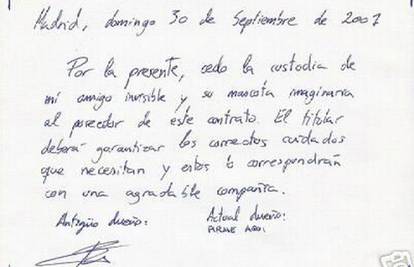 Madrid, domingo 30 de Septiembre de 2007
Por la presente, cedo la custodia de
mi amigo invisible y su mascota imaginaria
al poseedor de este contrato. El titular
deberá garantizar los correctos cuidados
que necesitan y estos le corresponderán
con una agradable compañía.
Antigüo dueño: Actual dueño:
FIRME AQUI.